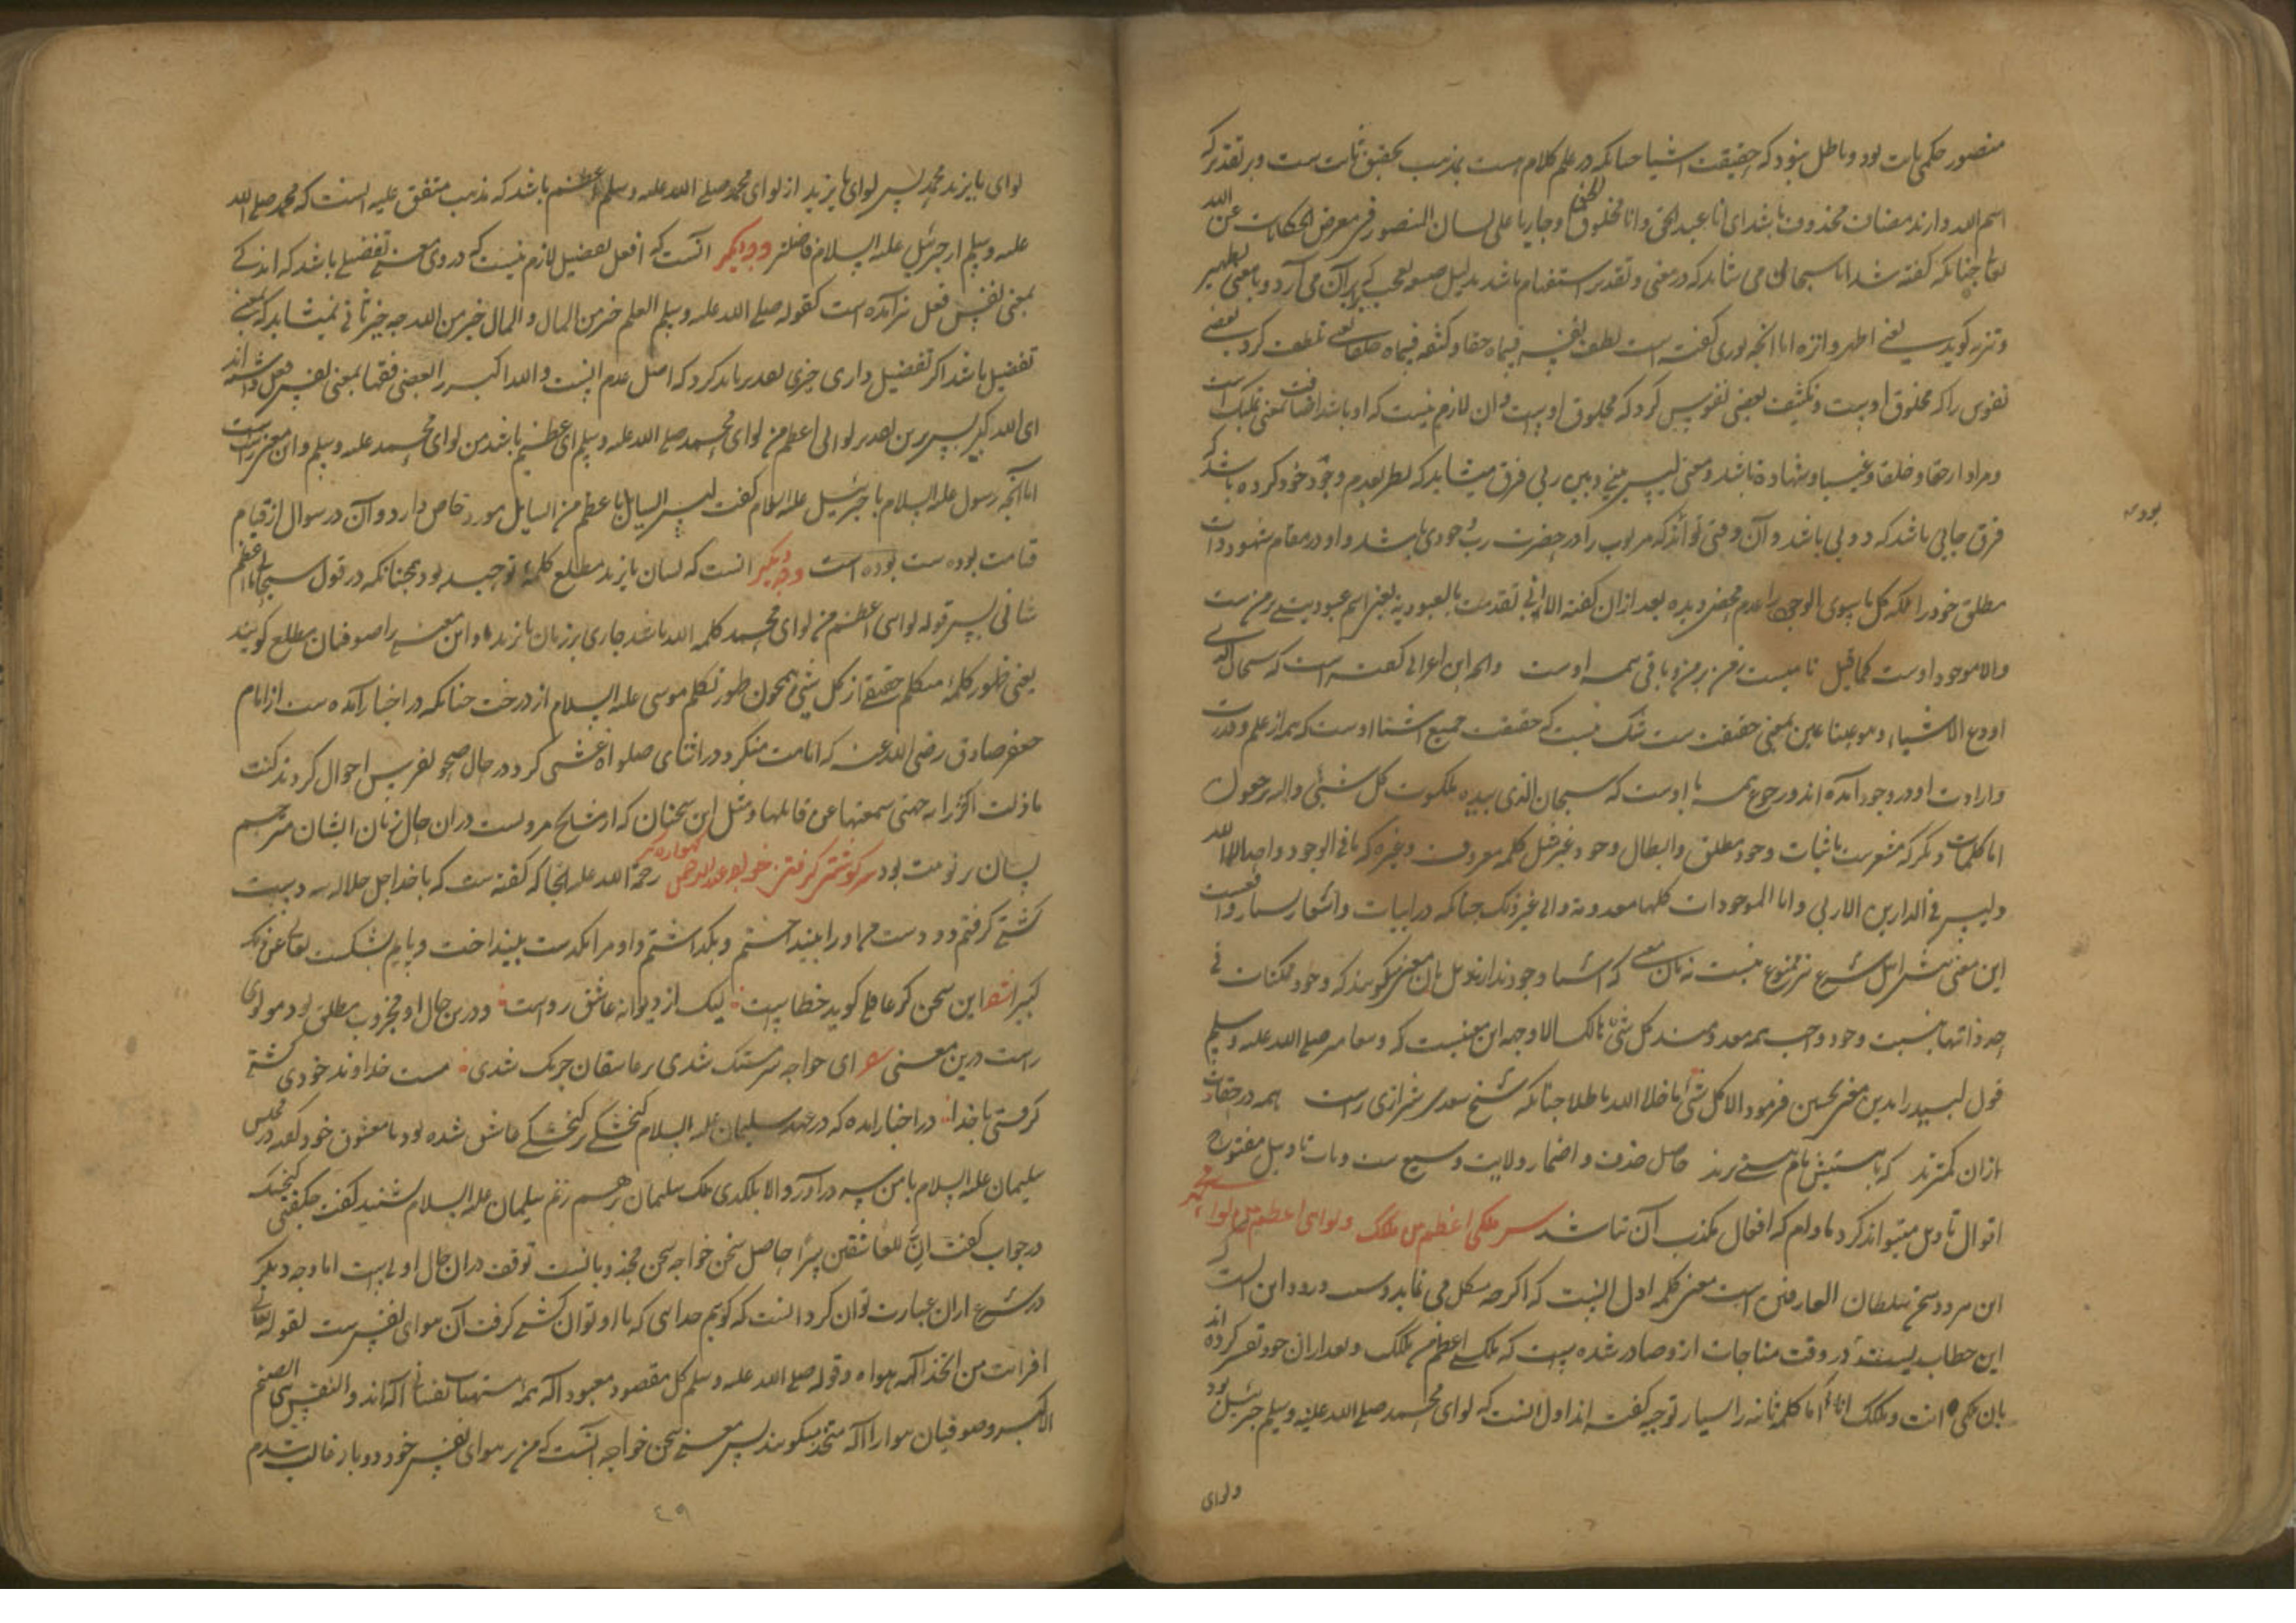 منصور حکمی ثابت بود و باطل نبود که حقیقت اشیا چنانکه در علم کلام است بمذهب تحقیق ثابت ست و بر تقدیر که
اسم الله دارند مضاف محذوف باشد ای انا عبد الحق و انا مخلوق الحق و جاریا علی لسان المنصور فی معرض الحکایات عن الله
تعالی چنانکه گفته شد اما سبحانی می شاید که در معنی و تقدیر استفهام باشد بدلیل
و تنزیه گوید یعنی اطهر و انزه اما انچه نوری گفته است لطف نفسه فسماه حقا و کثفه فسماه خلقا یعنی تلطف کرد بعضی
نفوس را که مخلوق اوست و تکثیف بعضی نفوس کرد که مخلوق اوست و آن لازم نیست که او باشد اضافت بمعنی تملیک است
و مراد از حقا و خلقا و غیبا و شهادة باشد و معنی لیس بینی و بین ربی فرق میشاید که نظر بعدم وجود خود کرده باشد که
فرق جایی باشد که دویی باشد و آن وقتی تواند که مربوب را در حضرت رب خودی باشد و او در مقام شهود ذات
مطلق خود را بلکه کل ما سوی الوجود را عدم محض دیده بعد ازان گفته الا انی تقدمت بالعبودیة یعنی اسم عبودیت بر من ست
والا موجود اوست کما قیل نامیست ز من بر من و باقی همه اوست و انچه ابن اعرابی گفته است که سبحان الذی
اودع الاشیاء و هو عینها عین بمعنی حقیقت ست شک نیست که حقیقت جمیع اشیا اوست که همه از علم و قدرت
و ارادت او در وجود آمده اند و رجوع همه با اوست که سبحان الذی بیده ملکوت کل شیء و الیه ترجعون
اما کلمات دیگر که مشعرست باثبات وجود مطلق و ابطال وجود غیر مثل کلمه معروف و غیره که ما فی الوجود واحد الا الله
و لیس فی الدارین الا ربی و اما الموجودات کلها معدومة و الی غیر ذلک چنانکه در ابیات و اشعار بسیار واقعست
این معنی نزد اهل شرع نیز ممنوع نیست نه بان معنی که اشیا وجود ندارند بل بان معنی میگویند که وجود ممکنات فی
حد ذاتها بنسبت وجود واجب همه معدومند کل شیء هالک الا وجهه این معنیست که پیغامبر صلی الله علیه و سلم
قول لبید را بدین معنی تحسین فرمود الا کل شیء ما خلا الله باطل چنانکه شیخ سعدی شیرازی راست همه هرچه هستند
ازان کمترند که با هستیش نام هستی برند حاصل حذف و اضمار ولایت وسیع ست و باب تاویل مفتوح
اقوال تاویل میتواند کرد مادام که افعال مکذب آن نباشد سر ملکی اعظم من ملکک و لوای اعظم من لواء محمد
این هر دو سخن سلطان العارفین است معنی کلمه اول اینست که اگرچه مشکل می نماید این است که
این خطاب نیست در وقت مناجات ازو صادر شده است که ملکی اعظم من ملکک و بعد ازان خود تفسیر کرده اند
بان ملکی انت و ملکک انا اما کلمه ثانیه را بسیار توجیه گفته اند اول اینست که لوای محمد صلی الله علیه و سلم جبرئیل بود
و لوای
بود
لوای بایزید محمد پس لوای بایزید از لوای محمد صلی الله علیه و سلم اعظم باشد که مذهب متفق علیه اینست که محمد صلی الله
علیه و سلم از جبرئیل علیه السلام فاضلتر وجه دیگر آنست که افعل تفضیل لازم نیست که در وی معنی تفضیل باشد که اندکی
بمعنی نفس فعل نیز آمده است کقوله صلی الله علیه و سلم العلم خیر من المال و المال خیر من الله چه خیر ثانی نمیشاید که بمعنی
تفضیل باشد اگر تفضیل داری چیزی تقدیر باید کرد که اصل عدم اینست و الله اکبر را بعضی فقها بمعنی نفس فعل داشته اند
ای الله کبیر پس برین تقدیر لوائی اعظم من لوای محمد صلی الله علیه و سلم ای عظیم باشد من لوای محمد علیه و سلم و این معنی راست
اما انچه رسول علیه السلام با جبرئیل علیه السلام گفت لیس السایل باعظم من السایل مورد خاص دارد و آن در سوال از قیام
قیامت بوده ست بوده است وجه دیگر انست که لسان بایزید مطلع کلمه توحید بود همچنانکه در قول سبحانی ما اعظم
شانی پس قوله لوای اعظم من لوای محمد کلمه الله باشد جاری بر زبان بایزید و این معنی را صوفیان مطلع گویند
یعنی ظهور کلمه متکلم حقیقی از کل شیء همچون ظهور تکلم موسی علیه السلام از درخت چنانکه در اخبار آمده ست از امام
جعفر صادق رضی الله عنه که امامت میکرد و در اثنای صلواة غشی کرد در حال صحو تفرس احوال کردند گفت
ما زلت اکررها حتی سمعتها من قائلها و مثل این سخنان که از مشایخ مرویست دران حال زبان ایشان مترجم
لسان ربوبیت بود سر کشتی گرفتن خواجه عبدالرحمن گهواره گر رحمة الله علیه انجا که گفته ست که با خدا جل جلاله سه دست
کشتی گرفتم دو دست من او را بینداختم و بگذاشتم و او مرا یکدست بینداخت و پایم بشکست تعالی عن ذلک
کبیرا شعر این سخن گر عاقلی گوید خطاست لیک از دیوانه عاشق رواست و درین حال او مجذوب مطلق بود مولوی
راست درین معنی شعر ای خواجه سرمستک شدی بر عاشقان خنبک زدی مست خداوند خودی کشتی
گرفتی با خدا در اخبار آمده که در عهد سلیمان علیه السلام گنجشکی بر گنجشکی عاشق شده بود با معشوق خود گفت در مجلس
سلیمان علیه السلام با من سر درآور و الا بلگدی ملک سلیمان برهم زنم سلیمان علیه السلام شنید گفت چه گفتی گنجشک
در جواب گفت ان للعاشقین سرا حاصل سخن خواجه سخن مجذوبانست توقف دران حال اولی است اما وجه دیگر
در شرع ازان عبارت توان کرد اینست که گویم خدایی که با او توان کشتی گرفت آن هوای نفس ست لقوله تعالی
افرایت من اتخذ الهه هواه و قوله صلی الله علیه و سلم کل مقصود معبود اله همه مشتهیات نفسانی اله اند و النفس هی الصنم
الاکبر و صوفیان هوا را اله متخذ میگویند پس معنی سخن خواجه آنست که من بر هوای نفس خود دو بار غالب شدم
٤٩